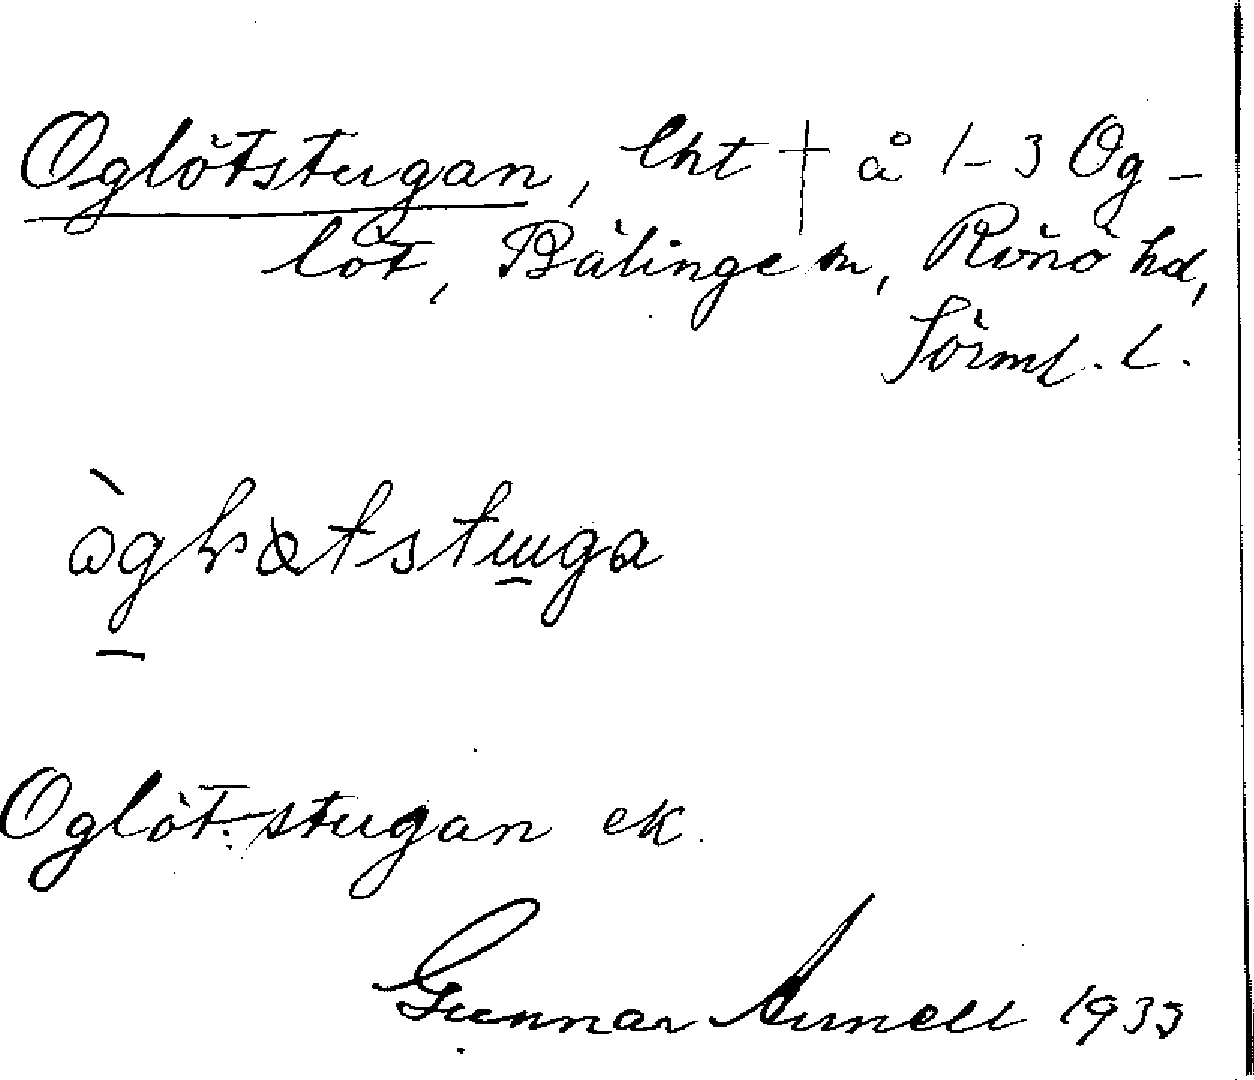 Oglötstugan, lht † å 1-3 Og-
löt, Bälinge sn, Rönö hd,
Sörml. l.
Oglöt-stugan ek.
Gunnar Arnell 1933